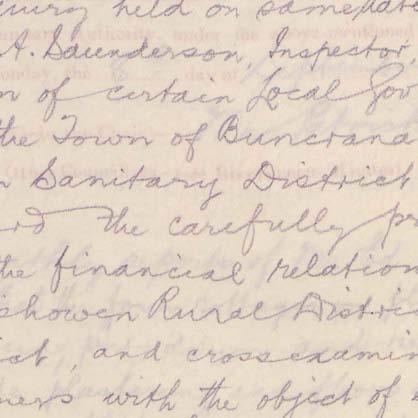 held on same date
A. Saunderson, Inspector,
of certain Local Gov
the Town of Buncrana
Sanitary District
the carefully
the financial relation
ishowen Rural Distric
ict, and cross examin
ners with the object of